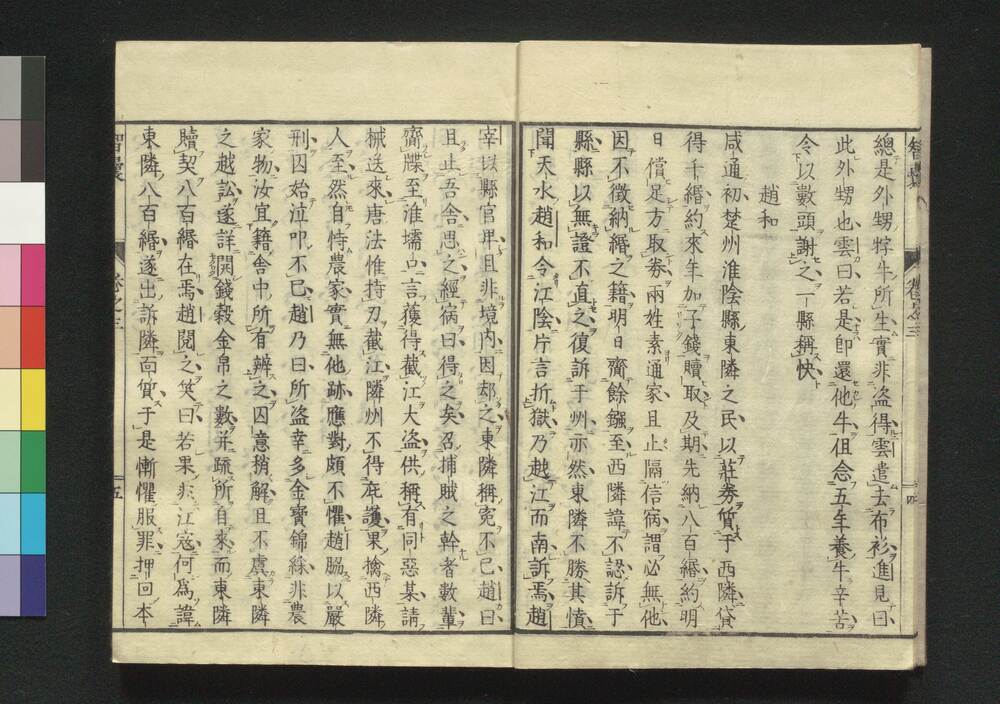 總是外甥牸牛所生實非盗得雲遣去布衫進見曰
此外甥也雲曰若是即還他牛但念五年養牛辛苦
令以數頭謝之一縣稱快
趙和
咸通初楚州淮陰縣東隣之民以莊券質于西隣貸
得千緡約來年加子錢贖取及期先納八百緡約明
日償足方取券兩姓素通家且止隔信宿謂必無他
因不徵納緡之籍明日齎餘鏹至西隣諱不認訴于
縣縣以無證不直之復訴于州亦然東隣不勝其憤
聞天水趙和令江陰片言折獄乃越江而南訴焉趙
宰以縣官卑且非境內因却之東隣稱寃不已趙曰
且止吾舍思之經宿曰得之矣召捕賊之幹者數輩
齎牒至淮壖口言獲得截江大盗供稱有同惡某請
械送來唐法惟持刃截江隣州不得庇護果擒西隣
人至然自恃農家實無他跡應對頗不懼趙脇以嚴
刑囚始泣叩不已趙乃曰所盗幸多金寳錦綵非農
家物汝宜籍舍中所有辨之囚意稍解且不虞東隣
之越訟遂詳開錢穀金帛之數并疏所自來而東隣
贖契八百緡在焉趙閱之笑曰若果非江宼何爲諱
東隣八百緡遂出訴隣面質于是慚懼服罪押回本
智囊
卷之三
四
五